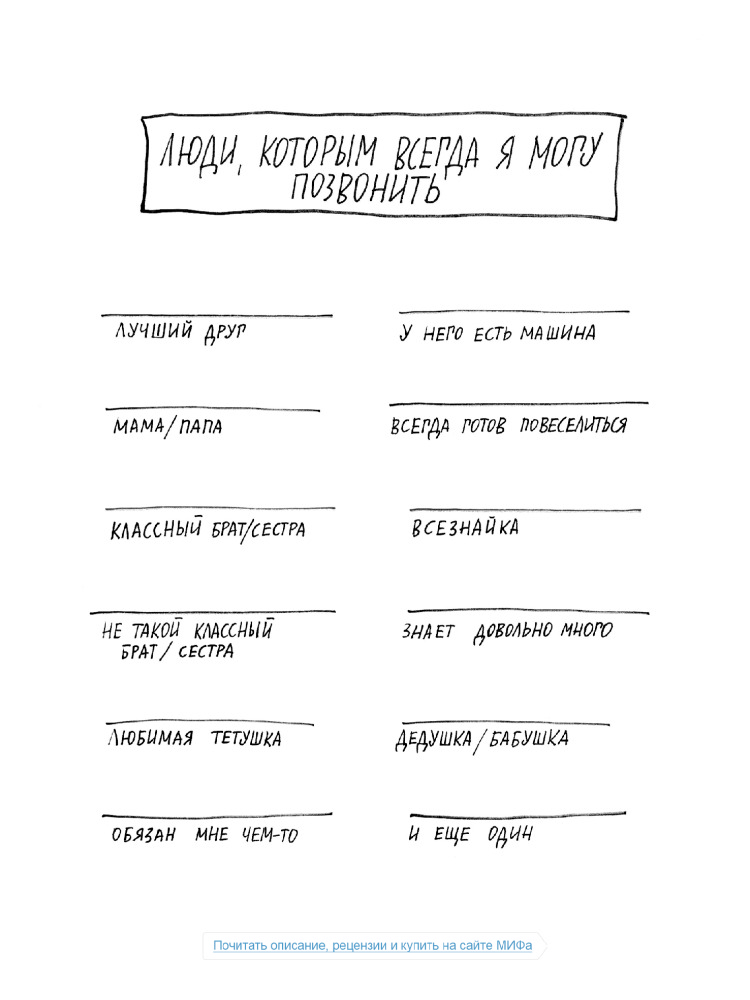 ЛЮДИ, КОТОРЫМ ВСЕГДА Я МОГУ
ПОЗВОНИТЬ
ЛУЧШИЙ ДРУГ
У НЕГО ЕСТЬ МАШИНА
МАМА/ПАПА
ВСЕГДА ГОТОВ ПОВЕСЕЛИТЬСЯ
КЛАССНЫЙ БРАТ/СЕСТРА
ВСЕЗНАЙКА
НЕ ТАКОЙ КЛАССНЫЙ
БРАТ/ СЕСТРА
ЗНАЕТ ДОВОЛЬНО МНОГО
ЛЮБИМАЯ ТЕТУШКА
ДЕДУШКА/БАБУШКА
ОБЯЗАН МНЕ ЧЕМ-ТО
И ЕЩЕ ОДИН
Почитать описание, рецензии и купить на сайте МИФа